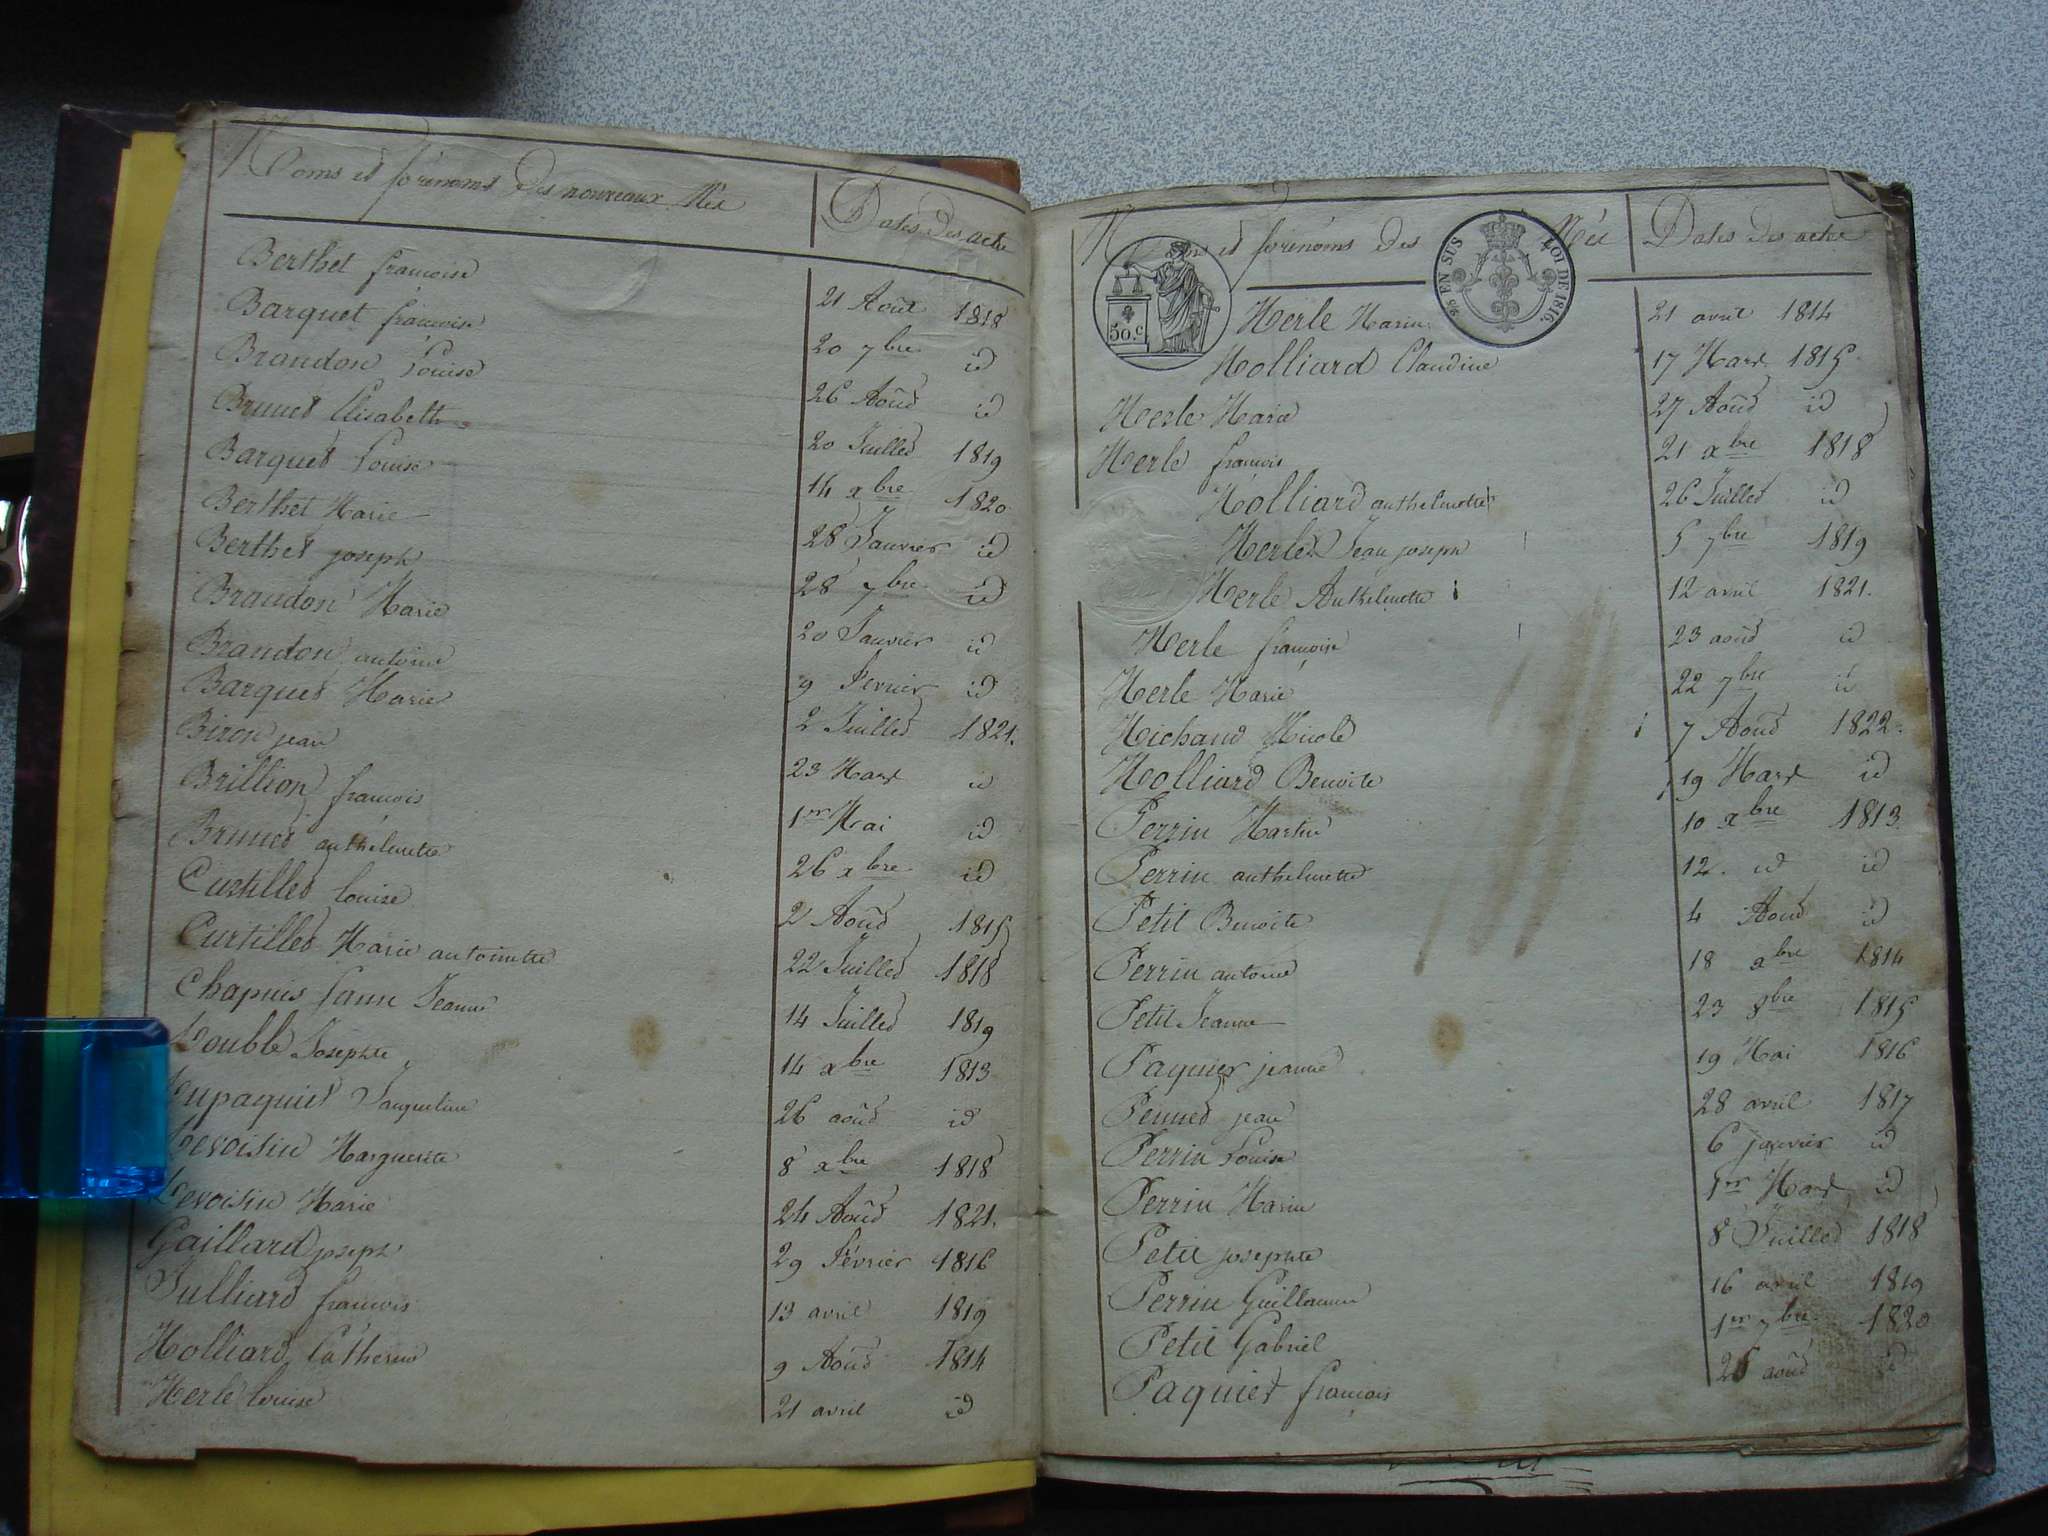 Noms et prénoms des nouveaux Nés Dates des actes
Berthet françoise 21 Août 1818
Barquet françoise 20 7bre id
Brandon Louise 26 Août id
Brunet Elisabeth 20 Juillet 1819
Barquet Louise 14 xbre 1820
Berthet Marie 28 Janvier id
Berthet joseph 28 7bre id
Brandon Marie 20 Janvier id
Brandon antoine 9 Fevrier id
Barquet Marie 2 Juillet 1821.
Biron jean 23 Mars id
Brillion françois 1er Mai id
Brunet anthelmette 26 xbre id
Curtillet Louise 2 Août 1815
Curtillet Marie antoinette 22 Juillet 1818
Chapuis Jeanne 14 Juillet 1819
Josephte 14 xbre 1813
Jacqueline 26 août id
Levoisin Marguerite 8 xbre 1818
Levoisin Marie 24 Août 1821.
Gaillard joseph 29 Février 1816
Julliard francois 13 avril 1819
Molliard Catherine 9 Août 1814
Merle Louise 21 avril id
Noms et prénoms des Nés Dates des actes
50.c
25 EN SUS LOI DE 1816.
Merle Marin 21 avril 1814
Molliard Claudine 17 Mars 1815
Merle Marie 27 Août id
Merle francois 21 xbre 1818
Molliard anthelmette 26 Juillet id
Merle Jean joseph 5 7bre 1819
Merle Anthelmette 12 avril 1821.
Merle françoise 23 août id
Merle Marie 22 7bre id
Michaud Nicole 7 Août 1822.
Molliard Benoite 19 Mars id
Perrin Martine 10 xbre 1813
Perrin anthelmette 12. id id
Petit Benoite 4 Août id
Perrin antoine 18 xbre 1814
Petit Jeanne 23 8bre 1815
Paquier jeanne 19 Mai 1816
Pennet jean 28 avril 1817
Perrin Louise 6 janvier id
Perrin Marin 1er Mars id
Petit josephte 8 Juillet 1818
Perrin Guillaume 16 avril 1819
Petit Gabriel 1er 7bre 1820
Paquiet françois 25 août id